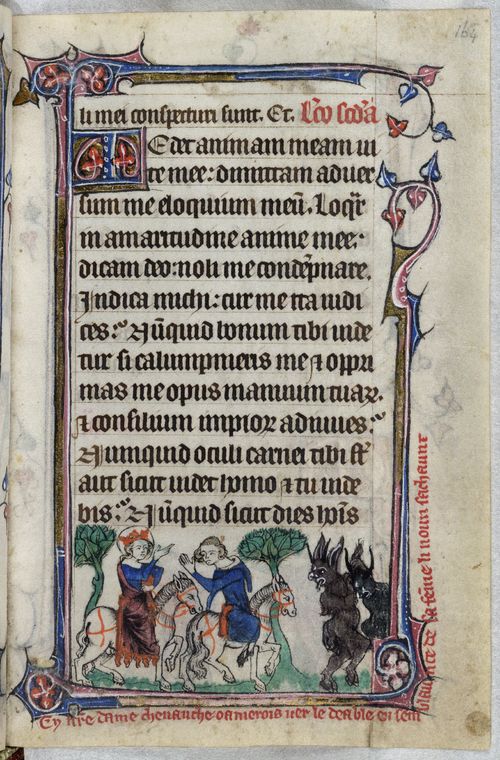 164
li mei conspecturi sunt. Et. Lc̄o sc̄da
Tedet animam meam ui
te mee: dimittam aduer
sum me eloquium meū. Loqr̄
in amaritudine anime mee:
dicam deo: noli me condēpnare.
Indica michi: cur me ita iudi
ces: Nūquid bonum tibi uide
tur si calumpnieris me ⁊ oppri
mas me opus manuum tuaꝝ.
⁊ consilium impioꝝ adiuues:
Numquid oculi carnei tibi st̄
aut sicut uidet homo ⁊ tu uide
bis: Nūquid sicut dies hoīs
Cy n̄re dame cheuauche oa merois uer le deable en sem
blaunce de la feme li noun sachaunt